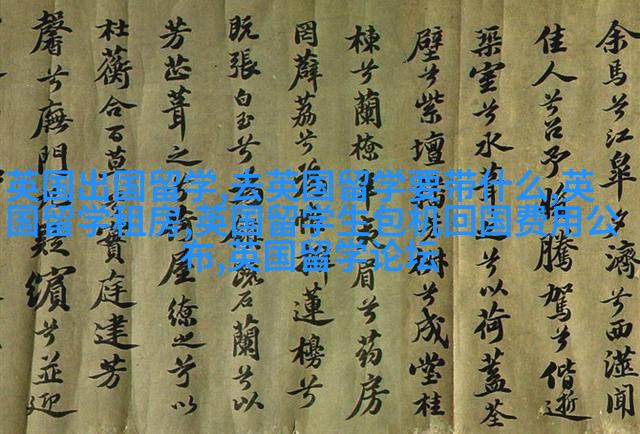 英国出国留学,去英国留学要带什么,英
国留学租房,英国留学生包机回国费用公
布,英国留学论坛
余馬兮江皋夕濟兮西澨聞
佳人兮召予騰駕兮偕逝
築室兮水中之兮以荷蓋荃
壁兮紫壇兮成堂桂
棟兮蘭橑辛眉兮葯房
罔薜荔兮蓮櫋兮
既張白玉兮石蘭兮以
芳芷葺之屋繚之兮以
杜蘅合百草實庭建芳
馨兮廡門疑繽兮並迎